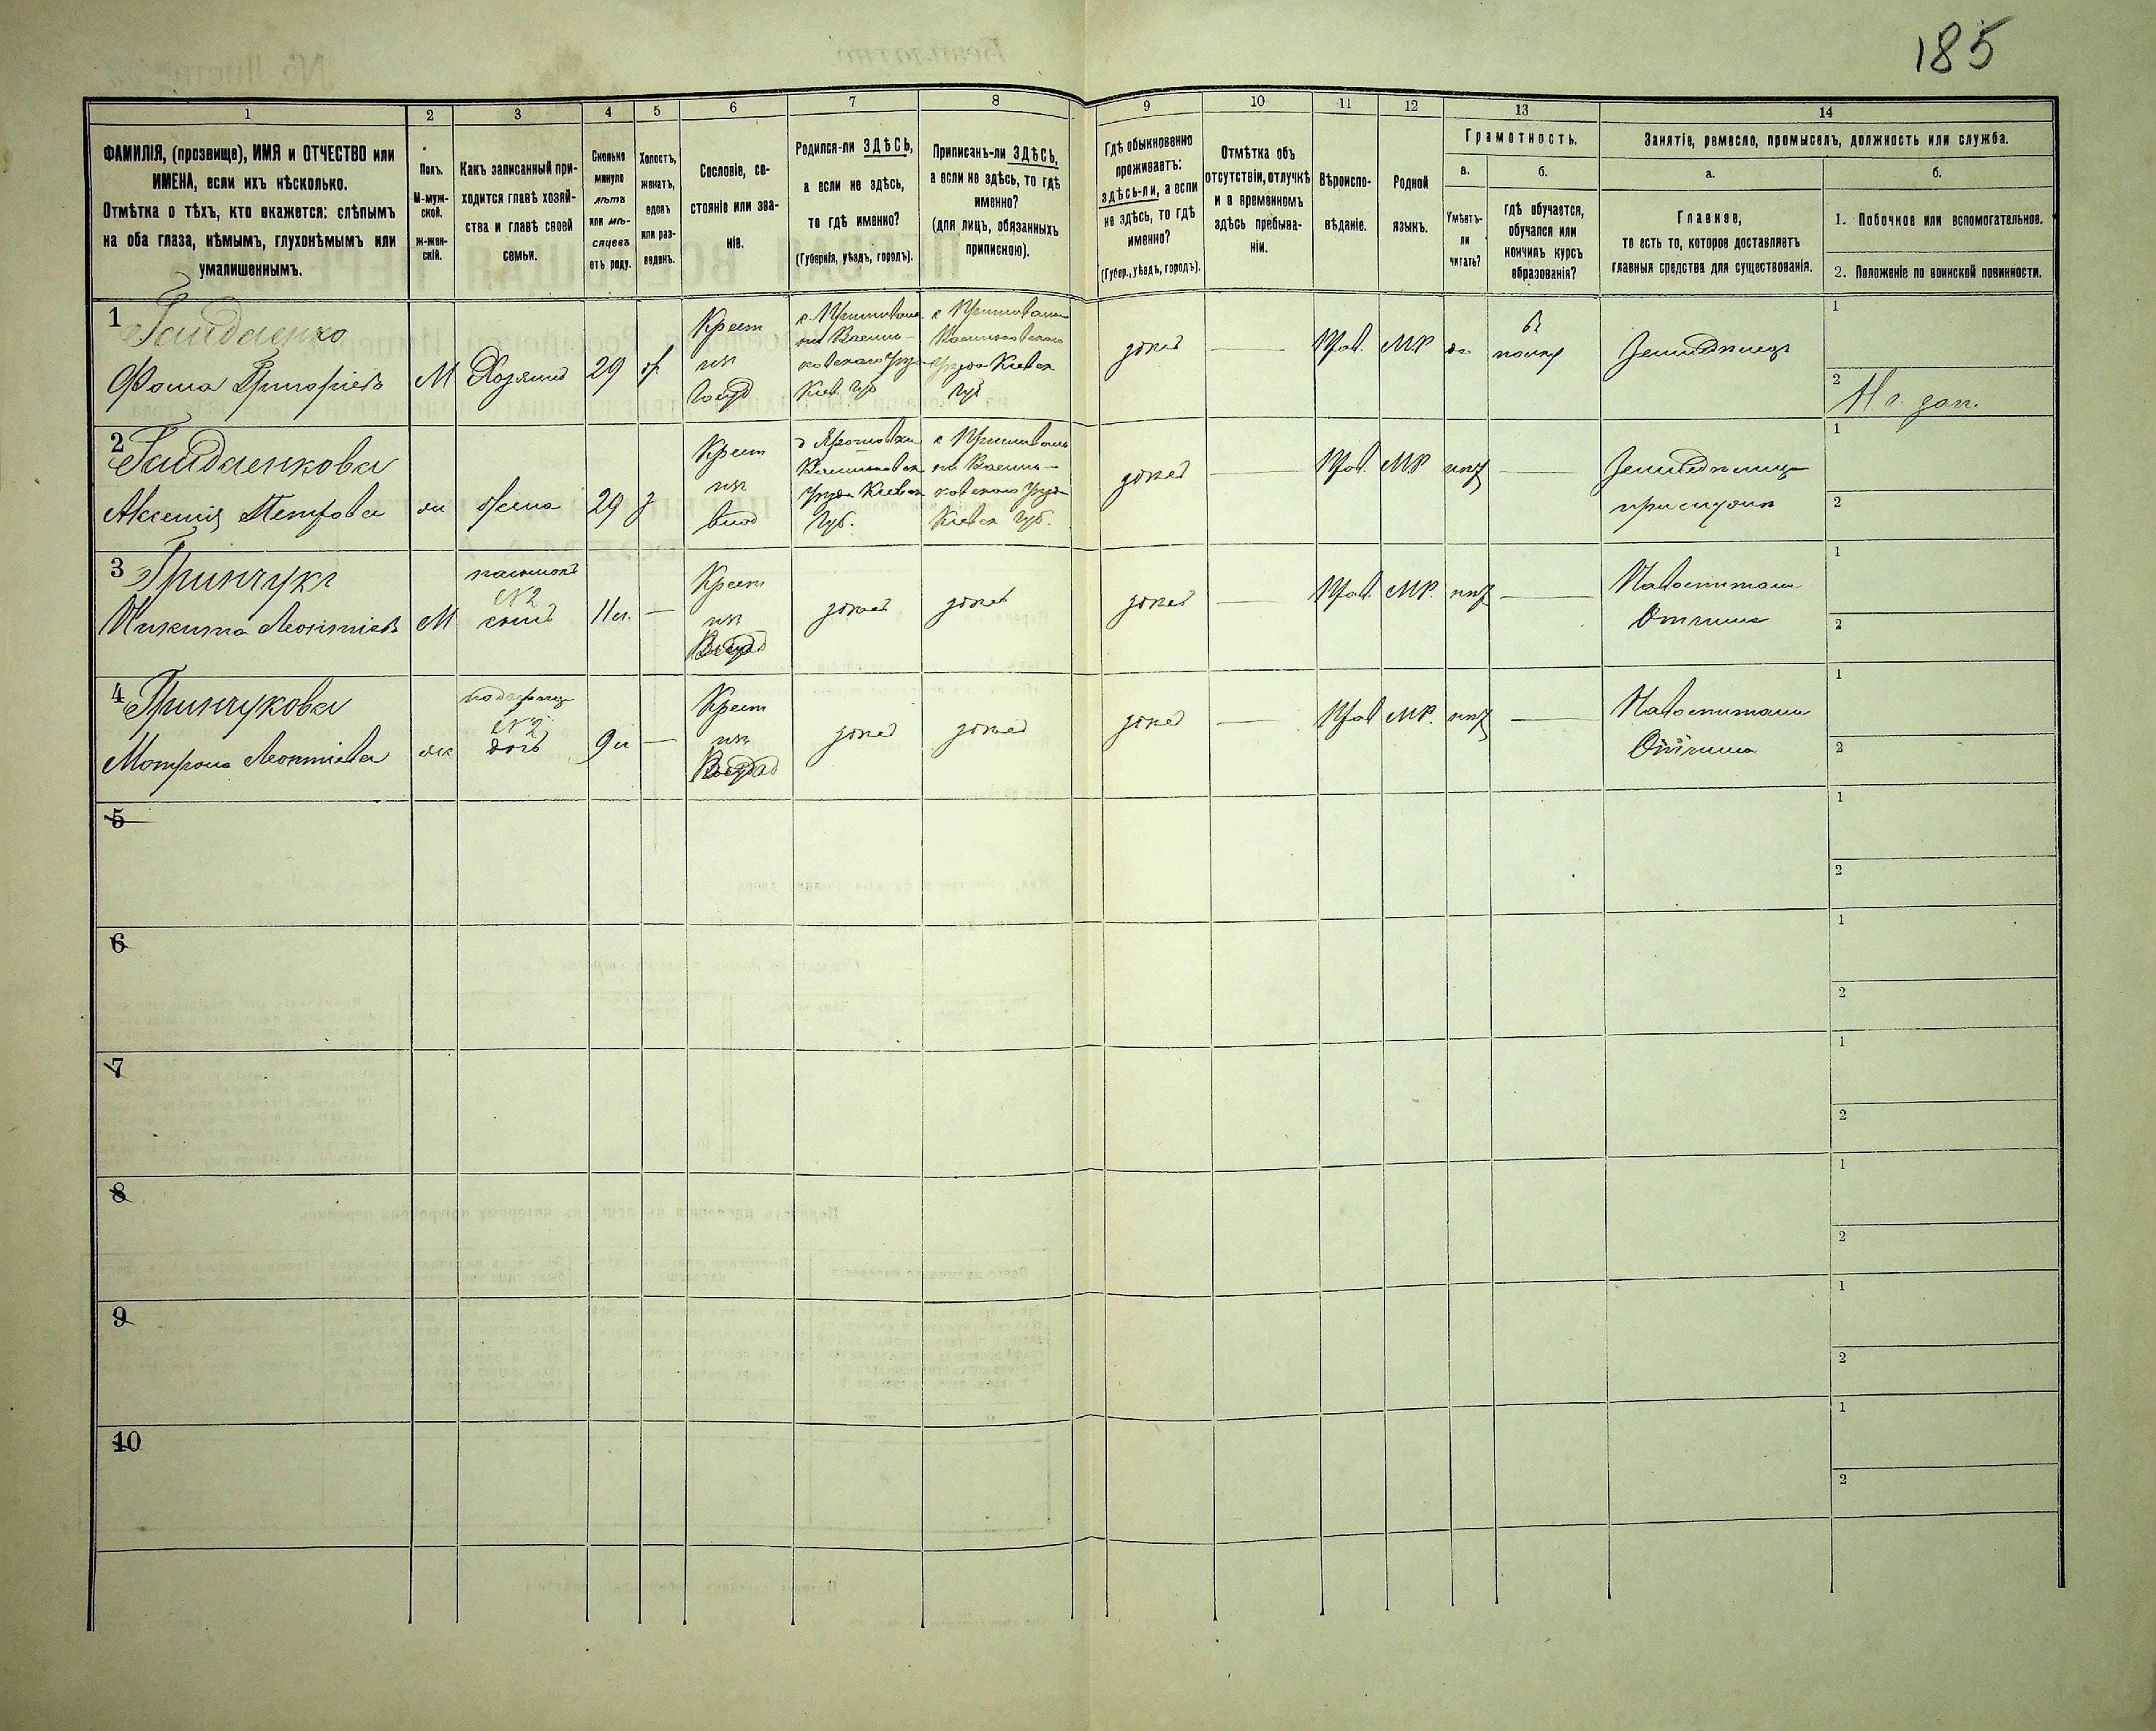 185
1
2
3
4
5
6
7
8
9
10
11
12
13
14
ФАМИЛІЯ, (прозвище), ИМЯ и ОТЧЕСТВО или
ИМЕНА, если ихъ нѣсколько.
Отмѣтка о тѣхъ, кто окажется: слѣпымъ
на оба глаза, нѣмымъ, глухонѣмымъ или
умалишеннымъ.
Полъ.
М-муж-
ской.
ж-жен-
скій.
Какъ записанный при-
ходится главѣ хозяй-
ства и главѣ своей
семьи.
Сколько
минуло
лѣтъ
или мѣ-
сяцевъ
отъ роду.
Холостъ,
женатъ,
вдовъ
или раз-
веденъ.
Сословіе, со-
стояніе или зва-
ніе.
Родился-ли ЗДѢСЬ,
а если не здѣсь,
то гдѣ именно?
(Губернія, уѣздъ, городъ).
Приписанъ-ли ЗДѢСЬ,
а если не здѣсь, то гдѣ
именно?
(для лицъ, обязанныхъ
припискою).
Гдѣ обыкновенно
проживаетъ:
здѣсь-ли, а если
не здѣсь, то гдѣ
именно?
(Губер., уѣздъ, городъ).
Отмѣтка объ
отсутствіи, отлучкѣ
и о временномъ
здѣсь пребыва-
ніи.
Вѣроиспо-
вѣданіе.
Родной
языкъ.
Грамотность.
а.
Умѣетъ-
ли
читать?
б.
гдѣ обучается,
обучался или
кончилъ курсъ
образованія?
Занятіе, ремесло, промыселъ, должность или служба.
а.
Главное,
то есть то, которое доставляетъ
главныя средства для существованія.
б.
1. Побочное или вспомогательное.
2. Положеніе по воинской повинности.
1
Гайдаенко
Фома Григорьевъ
М
Хозяинъ
29
ж
Крест
Кіев. Губ
Уѣзда Кіевск
Губ
здѣсь
Прав.
МР
да
въ
Земледѣлецъ
1
2
2
Гайдаенкова
Аксенія Петрова
жена
29
з
Крест
Уѣзда Кіевск
Губ.
Кіевск Губ.
здѣсь
Прав.
МР
нѣт
Земледѣлица
1
2
3
Гринчукъ
Никита Леонтіевъ
М
пасынокъ
№2
сынъ
11л.
Крест
здѣсь
здѣсь
здѣсь
Прав.
МР.
нѣт
Отчима
1
2
4
Гринчукова
Мотрона Леонтіева
падчериц
№2
дочь
9л
Крест
здѣсь
здѣсь
здѣсь
Прав
МР.
нѣт
Отчима
1
2
5
1
2
6
1
2
7
1
2
8
1
2
9
1
2
10
1
2